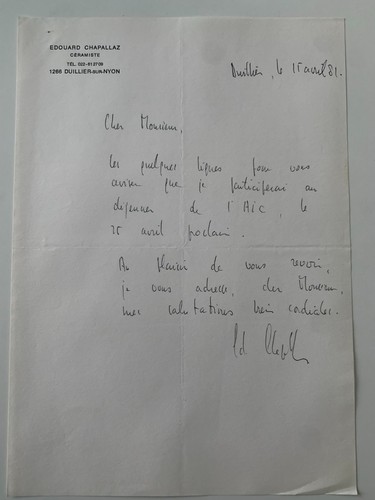 EDOUARD CHAPALLAZ
CÉRAMISTE
TÉL. 022-612709
1266 DUILLIER-SUR-NYON
Duillier, le 15 avril 81.
Cher Monsieur,
Ces quelques lignes pour vous
aviser que je participerai au
déjeuner de l'AIC, le
25 avril prochain.
Au plaisir de vous revoir,
je vous adresse, cher Monsieur,
mes salutations bien cordiales.
Ed Chapallaz